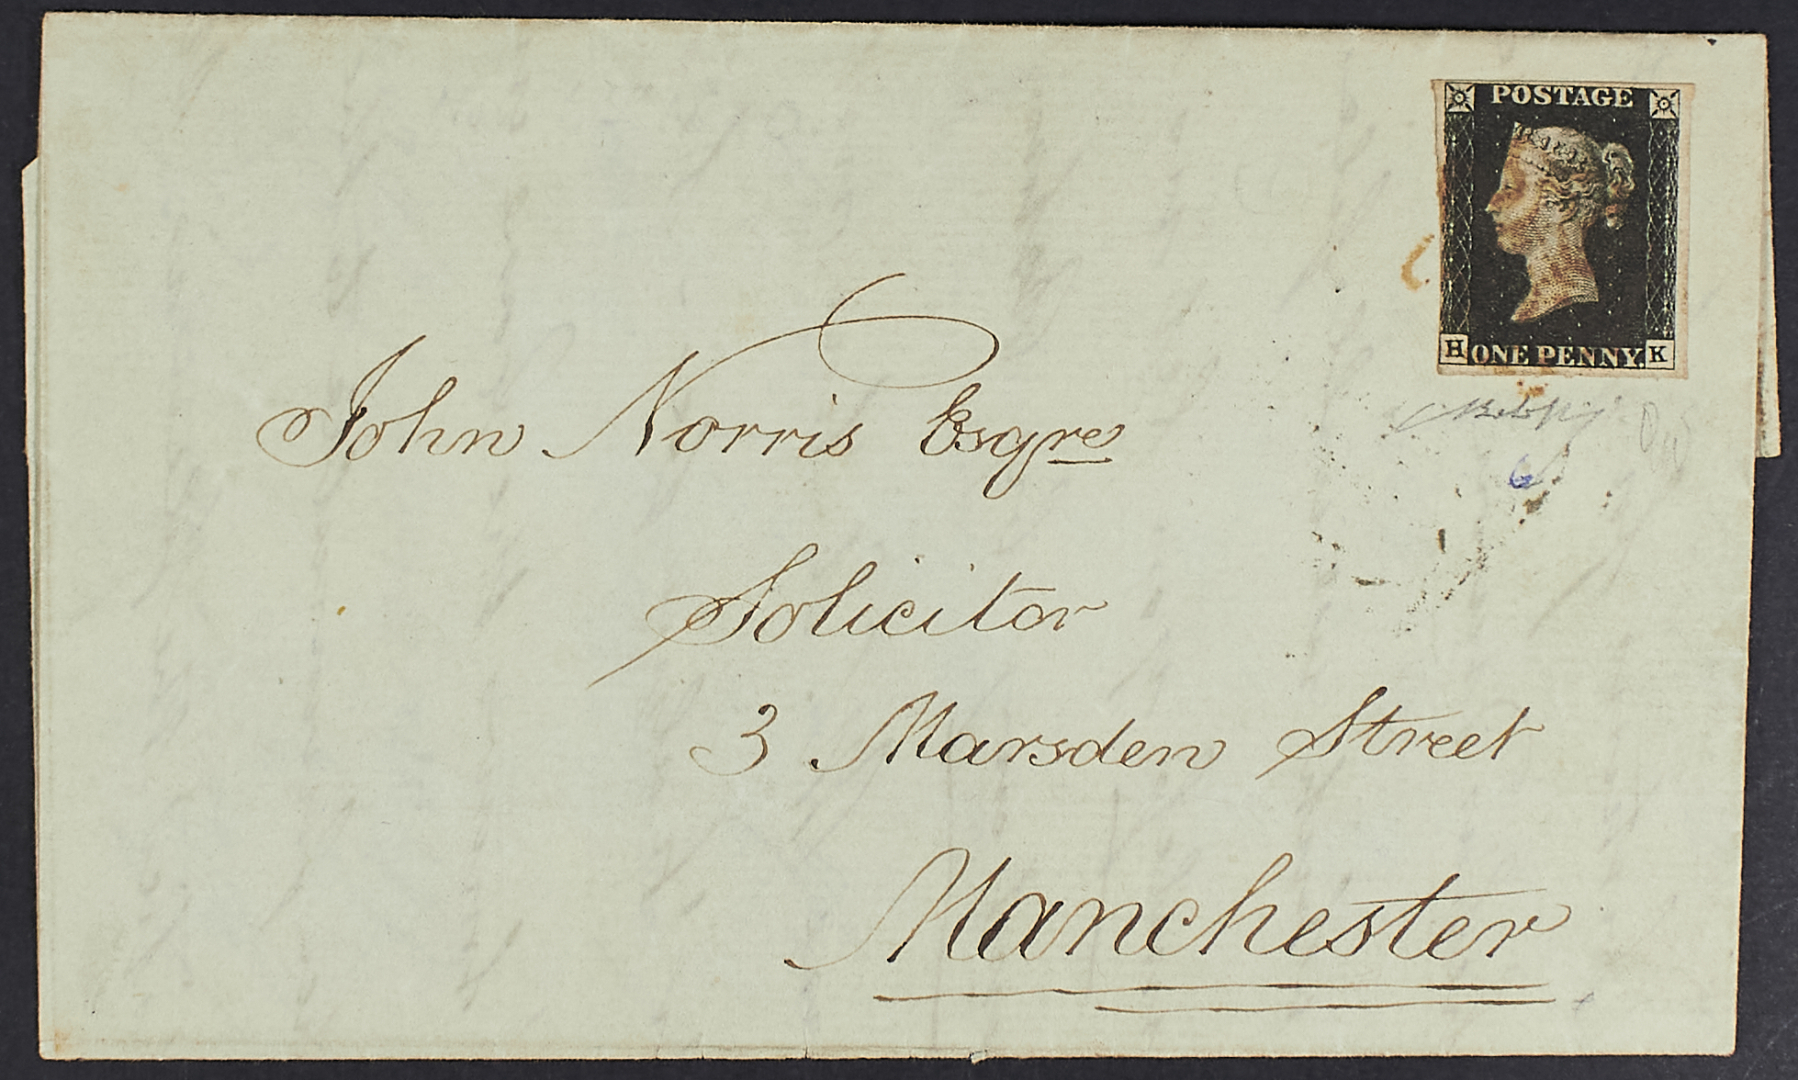 POSTAGE
H ONE PENNY. K
John Norris Esqre
Solicitor
3 Marsden Street
Manchester